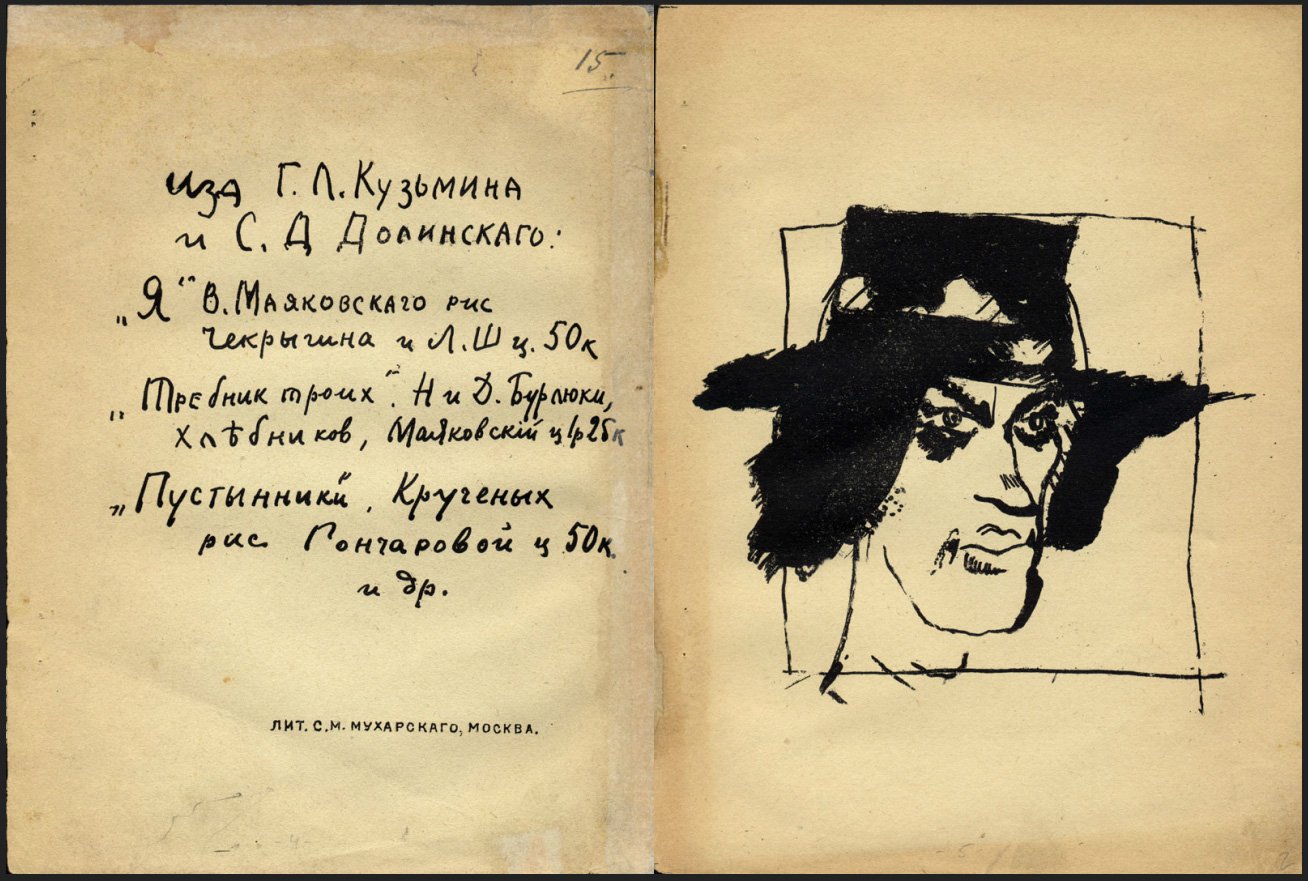 15.
изд Г. Л. Кузьмина
и С. Д Долинскаго:
„Я“ В. Маяковскаго рис
Чекрыгина и Л. Ш ц. 50к
„Требник троих“. Н и Д. Бурлюки,
Хлѣбников, Маяковскій ц 1р 25к
„Пустынники“, Крученых
рис Гончаровой ц 50к.
и др.
ЛИТ. С.М. МУХАРСКАГО, МОСКВА.
2